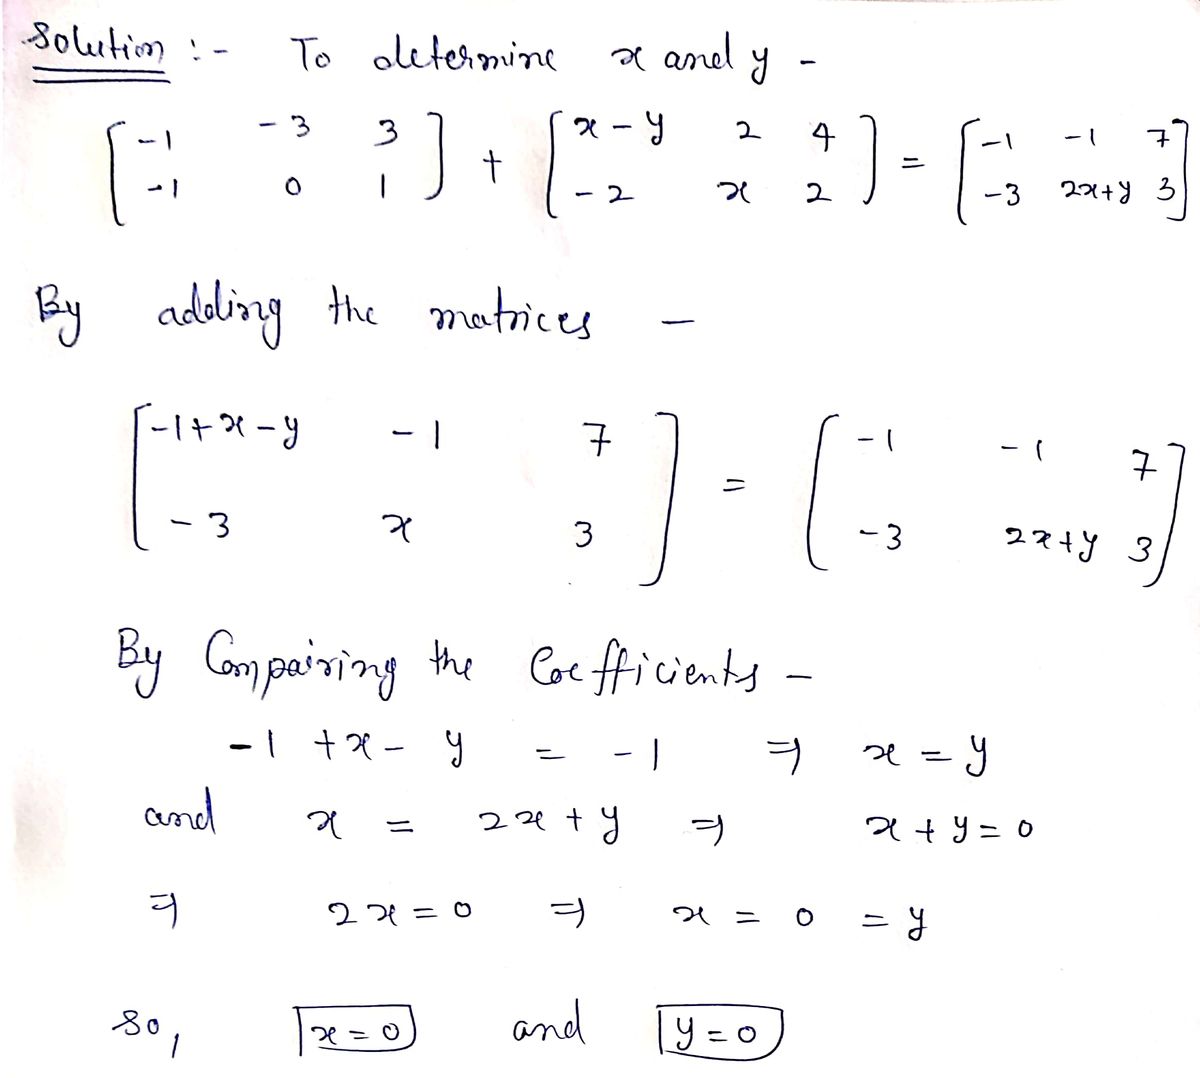 Solution :- To determine x and y -
[ -1 -3 3 ] + [ x-y 2 4 ] = [ -1 -1 7 ]
[ -1 0 1 ] [ -2 x 2 ] [ -3 2x+y 3 ]
By adding the matrices -
[ -1+x-y -1 7 ] = [ -1 -1 7 ]
[ -3 x 3 ] [ -3 2x+y 3 ]
By Compairing the Coefficients -
-1 +x- y = -1 ⇒ x = y
and x = 2x + y ⇒ x + y = 0
⇒ 2x = 0 ⇒ x = 0 = y
so, x = 0 and y = 0